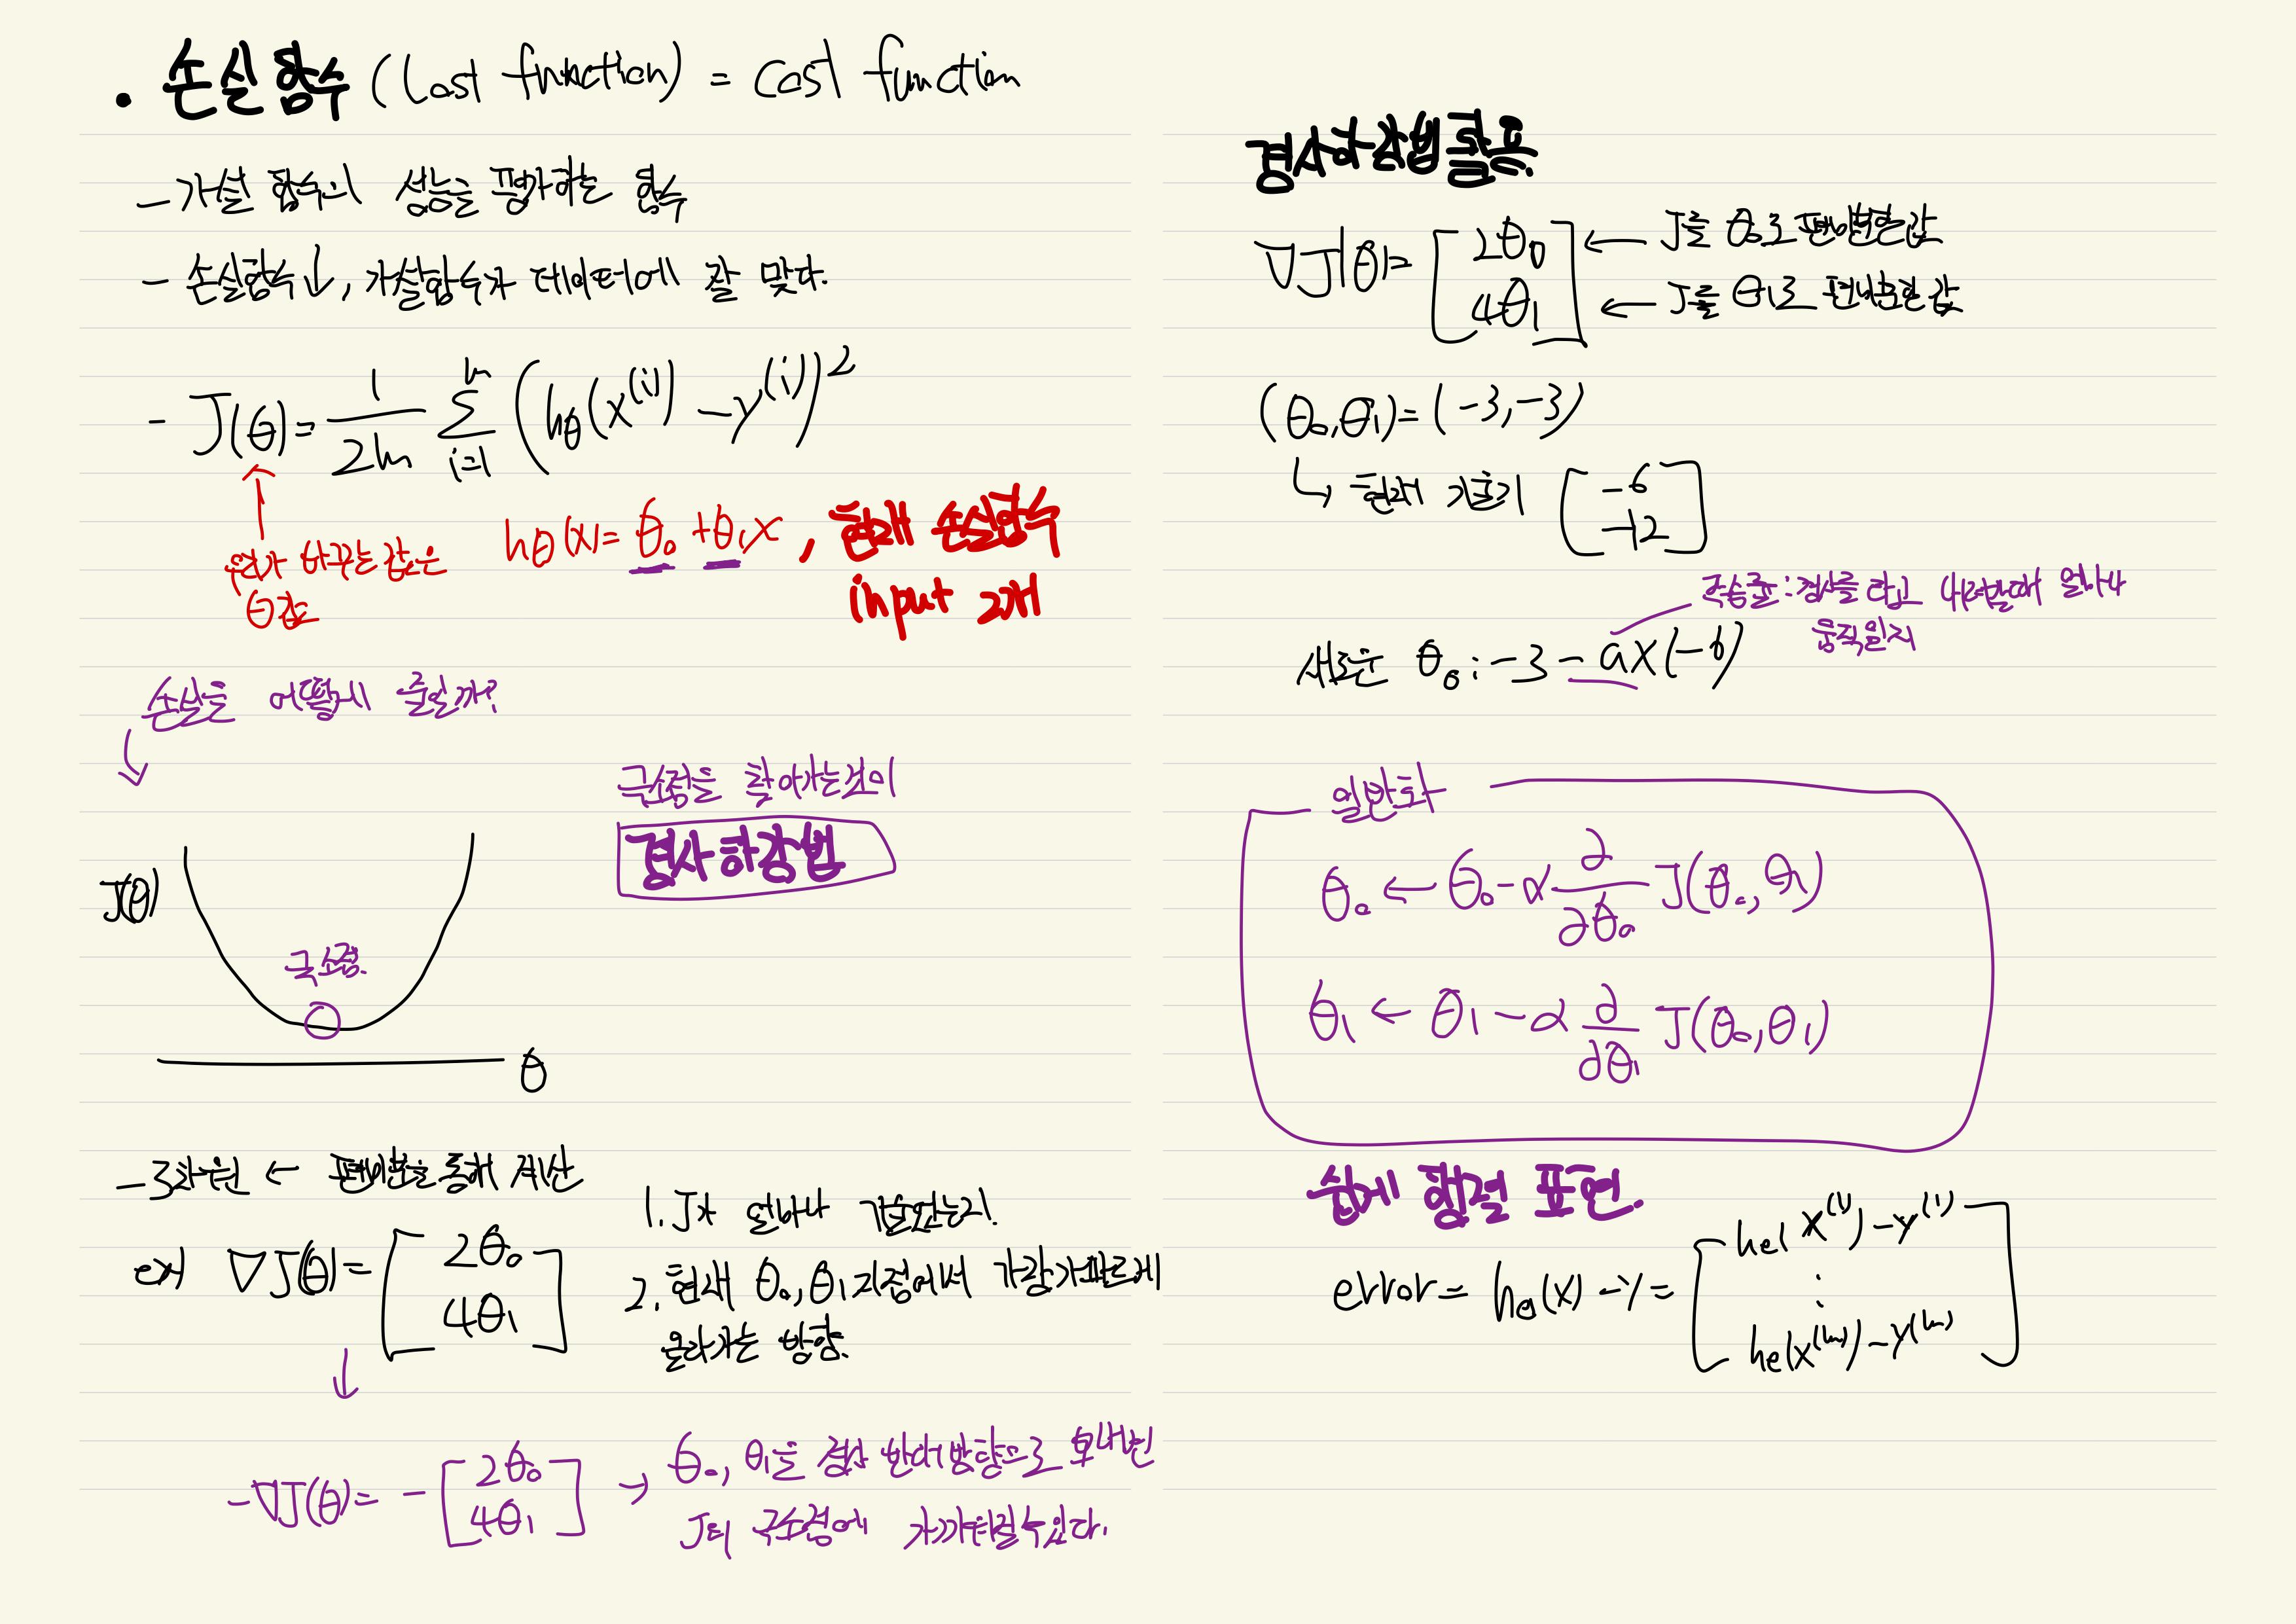 • 손실 함수 (Lost function) = cost function
- 가설 함수의 성능을 평가하는 함수
- 손실함수↓, 가설함수가 데이터에 잘 맞다.
- J(θ) = 1/2m Σ_{i=1}^{m} (h_θ(x^(i)) - y^(i))^2
우리가 바꾸는 값은
θ값
h_θ(x) = θ_0 + θ_1x , 현재 손실함수
input 2개
손실을 어떻게 줄일까?
극소점을 찾아가는것이
경사하강법
J(θ)
극소점.
θ
- 3차원 ← 편미분을 통해 계산
ex) ∇J(θ) = [2θ_0
4θ_1]
1. J가 얼마나 기울었는지.
2. 현재 θ_0, θ_1 지점에서 가장 가파르게
올라가는 방향.
↓
-∇J(θ) = -[2θ_0
4θ_1]
→ θ_0, θ_1을 경사 반대방향으로 보내면
J의 극소점에 가까워질수있다.
경사하강법 활용.
∇J(θ) = [2θ_0 ← J를 θ_0로 편미분한값
4θ_1] ← J를 θ_1로 편미분한 값
(θ_0, θ_1) = (-3, -3)
↳ 현재 기울기 [-6
-12]
학습률: 경사를 타고 내려갈때 얼마나
움직일지
새로운 θ_0 : -3 - α×(-6)
일반화
θ_0 ← θ_0 - α ∂/∂θ_0 J(θ_0, θ_1)
θ_1 ← θ_1 - α ∂/∂θ_1 J(θ_0, θ_1)
쉽게 행렬 표현.
error = h_θ(x) - y = [h_θ(x^(1)) - y^(1)
⋮
h_θ(x^(m)) - y^(m)]